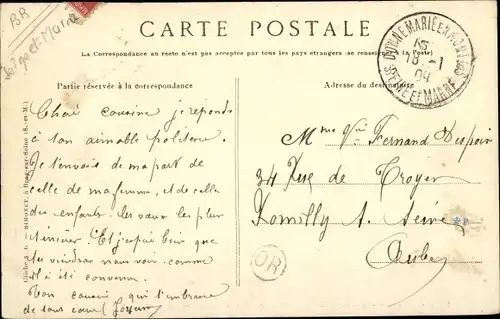 BR
Seine et Marne
CARTE POSTALE
La Correspondance au recto n'est pas acceptée par tous les pays étrangers (se renseigner à la Poste)
DONNEMARIE EN MONTOIS
18 -1
09
SEINE ET MARNE
Partie réservée à la correspondance
Adresse du destinataire
Chère cousine je réponds
à ton aimable politesse
Je t'envoie de ma part de
celle de ma femme et de celle
des enfants les vœux les plus
sincères Et j'espère bien que
tu viendras nous voir comme
il a été convenu
Ton cousin qui t'embrasse
de tout cœur
Mme Vve Fernand
34 Rue de Troyes
Romilly s. Seine
Aube
OR
Cliché S. L. - SIMONET, à Bray-sur-Seine (S.-et-M.)